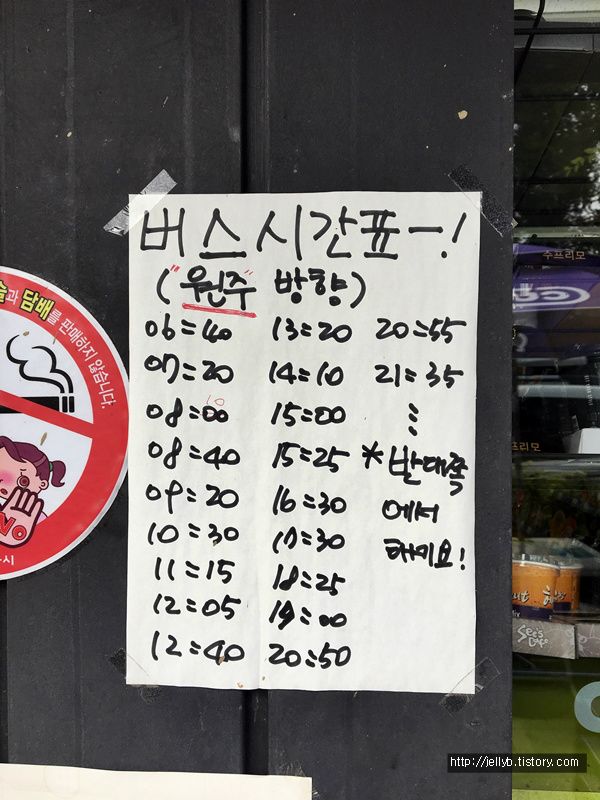 버스 시간표-!
("원주" 방향)
06:40
07:20
08:00
10
08:40
09:20
10:30
11:15
12:05
12:40
13:20
14:10
15:00
15:25
16:30
17:30
18:25
19:00
20:50
20:55
21:35
⋮
*반대쪽
에서
타세요!
술과 담배를 판매하지 않습니다.
NO
수프리모
프리모
http://jellyb.tistory.com